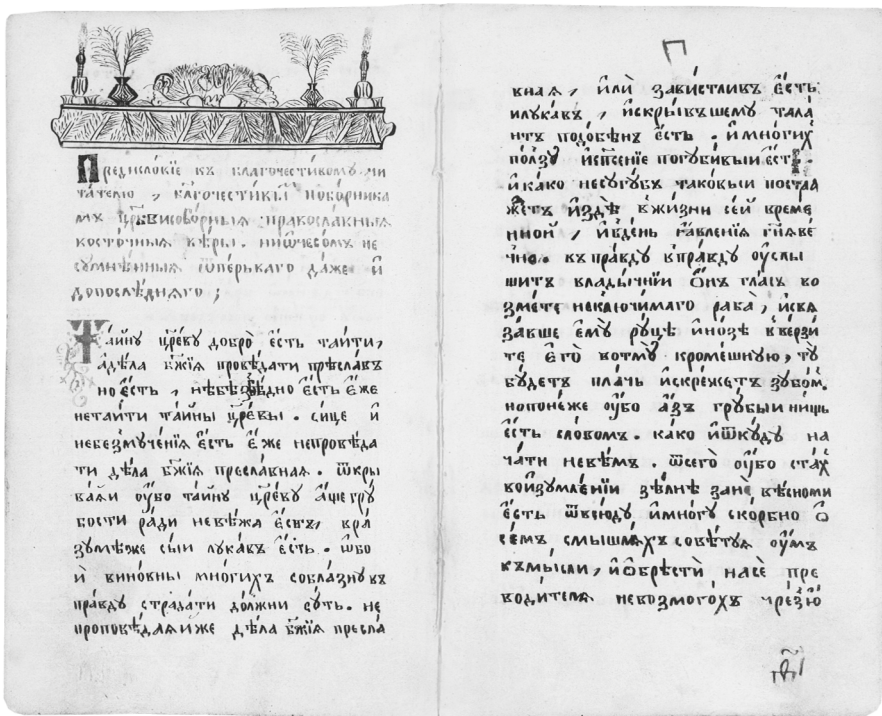 Предисловїе къ благочестивому чи
тателю , бл҃гочестивы̑й поборника
мъ цр҃квисоборныя православныя
восточныя вѣры . ниѿчесомъ не
сумнѣнныя ѿперьваго даже и҆
допослѣдняго ;
Та́йну цр҃еву добро̀ є҆сть таи́ти ,
а҆дѣла бж҃їя проповѣдати прѣславъ
но є҆сть , нѣбѣ є҆сть є҆́же
нетаи́ти та́йны цр҃евы . сице и҆
небезмуче́нїя є҆сть є҆́же непроповѣда
ти дѣла бж҃їя пресла́вная . ѿкры
ва́яи ѹ҆бо та́йну цр҃еву а҆́ще гру́
бости ра́ди невѣжа є҆сть , ѝ ра
зумѣже сыи лука́въ є҆сть . ѡ҆бо
и҆ вино́вны мно́гихъ собла́зну въ
пра́вду страда́ти до́лжни су́ть . не
проповѣ́даяиже дѣла бж҃їя пресла́
п҃
вная , и҆лѝ зави́стливъ є҆́сть
илука́въ , и҆скры́въшему тала́
нтъ подо́бѣнъ є҆сть . и҆мно́гихъ
по́лзу и҆сп҃сенїе погуби́выи є҆сть .
и҆како несугу́бъ тако́выи постра́
жетъ и҆здѣ̀ вжи́зни се́й време
нной , и҆вде́нь ꙗ҆вле́нїя гн҃я вѣ
чно . въпра́вду впра́вду ѹ҆слы
шитъ влады́чнїи ѡ҆́нъ гла́съ во
зме́те неключи́маго раба̀ , и҆свя
за́вше є҆мꙋ̀ ру́цѣ и҆но́зѣ вве́рзи
те є҆го̀ вотмꙋ̀ кромѣшную , тꙋ̀
бу́детъ пла́чь и҆скре́жетъ зубо́мъ .
нопоне́же ѹ҆́бо а҆́зъ гру́быи нищь
є҆сть сло́вомъ . ка́ко и҆ѿкꙋ́дꙋ на
ча́ти невѣ́мъ . ѿсего̀ ѹ҆́бо ста́хъ
вои҆зумле́нїи зѣ́лнѣ зане̏ вѣсноми
є҆сть ѿвсю́ду и҆мно́гу ско́рбно ѡ҆
се́мъ смышля́хъ совѣ́туя ѹ҆́мъ
къмы́сли , и҆ѡ҆брѣсти̑ насѐ пре
води́теля невозмого́хъ чрез̾ ю҆